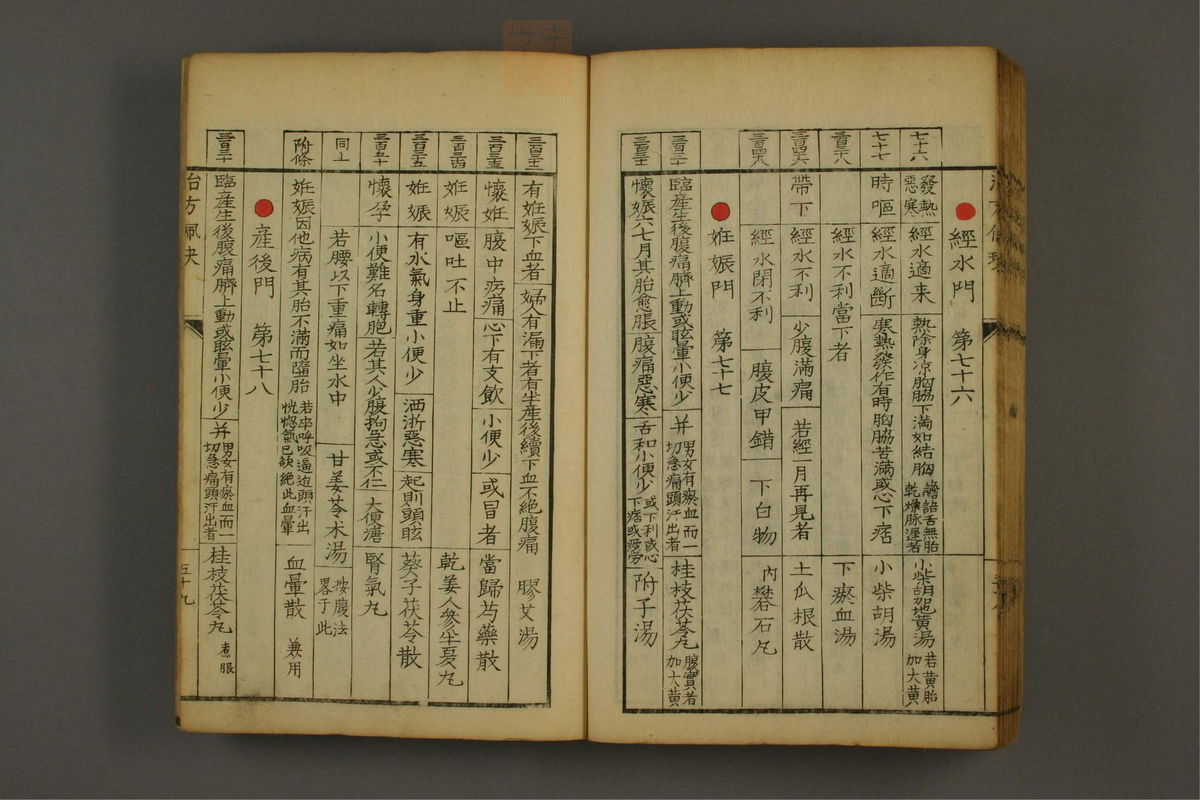 經水門 第七十六
七十六 發熱惡寒 經水適来 熱除身凉胸脇下滿如結胸 譫語舌無胎乾燥脉遲者 小柴胡加地黄湯 若黄胎加大黄
七十七 時嘔 經水適斷 寒熱發作有時胸脇苦滿或心下痞 小柴胡湯
經水不利當下者 下瘀血湯
帶下 經水不利 少腹滿痛 若經一月再見者 土瓜根散
經水閉不利 腹皮甲錯 下白物 内礬石丸
妊娠門 第七十七
臨産生後腹痛臍上動或眩暈小便少 并 男女有瘀血而一切急痛頭汗出者 桂枝茯苓丸 腹實者加大黄
懷娠六七月其胎愈脹 腹痛惡寒 舌和小便少 或下利或心下痞或疲勞 附子湯
有妊娠下血者 婦人有漏下者有半産後續下血不絶腹痛 膠艾湯
懷妊 腹中㽲痛 心下有支飲 小便少 或冒者 當歸芍藥散
妊娠 嘔吐不止 乾姜人參半夏丸
妊娠 有水氣身重小便少 洒浙惡寒 起則頭眩 葵子茯苓散
懷孕 小便難名轉胞 若其人少腹拘急或不仁 大便溏 腎氣丸
同上 若腰以下重痛如坐水中 甘姜苓朮湯 按腹法畧于此
附條 妊娠因他病有其胎不滿而墮胎 若卒呼吸逼迫頭汗出恍惚氣已欲絶此血暈 血暈散 兼用
産後門 第七十八
臨産生後腹痛臍上動或眩暈小便少 并 男女有瘀血而一切急痛頭汗出者 桂枝茯苓丸 煮服
五十九